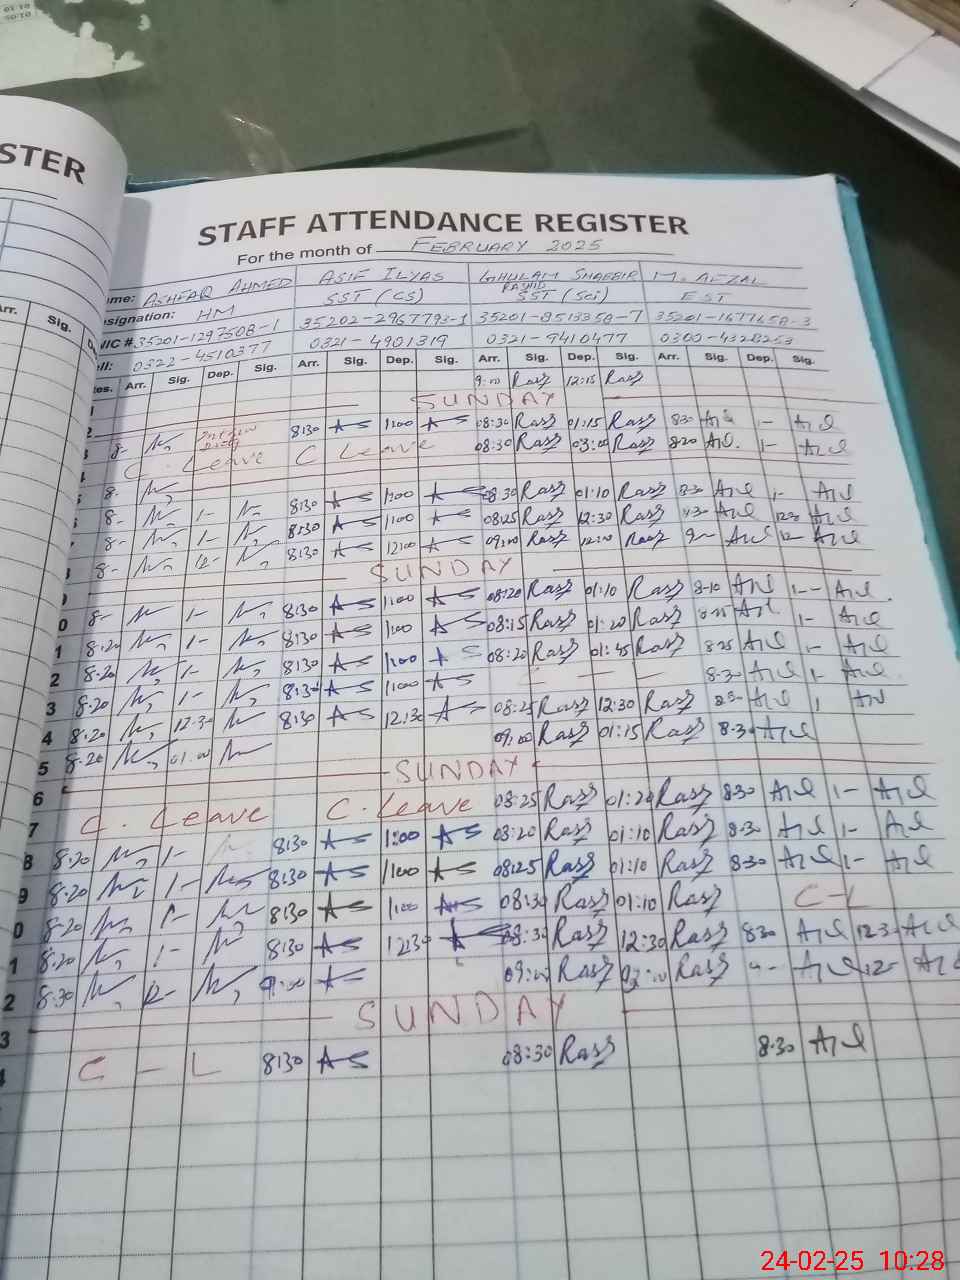 STER
STAFF ATTENDANCE REGISTER
For the month of FEBRUARY 2025
ame: ASHFAQ AHMED ASIF ILYAS GHULAM SHABBIR M. AFZAL
RASHID
esignation: HM SST (CS) SST (Sci) EST
NIC # 35201-1297508-1 35202-2967793-1 35201-8513358-7 35201-1677658-3
ell: 0322-4510377 0321-4901319 0321-9410477 0300-4328253
Arr. Sig. tes. Arr. Sig. Dep. Sig. Arr. Sig. Dep. Sig. Arr. Sig. Dep. Sig. Arr. Sig. Dep. Sig.
1 9:00 Rasz 12:15 Rasz
2 SUNDAY
3 8- 8:30 AS 1:00 AS 08:30 Rasz 01:15 Rasz 8:30 1-
4 C. Leave C Leave 08:30 Rasz 03:00 Rasz 8:20 1-
5 8- 8:30 AS 1:00 AS 08:30 Rasz 01:10 Rasz 8:30 1-
6 8- 1- 8:30 AS 1:00 AS 08:25 Rasz 12:30 Rasz
7 8- 1- 8:30 AS 12:00 AS 09:00 Rasz 12:00 Rasz 9- 12-
8 8- 12-
9 SUNDAY
0 8- 1- 8:30 AS 1:00 AS 08:20 Rasz 01:10 Rasz 8-10 1-
1 8.20 1- 8:30 AS 1:00 AS 08:15 Rasz 01:20 Rasz 1-
2 8.20 1- 8:30 AS 1:00 AS 08:20 Rasz 01:45 Rasz 8:25 1-
3 8.20 1- 8:30 AS 1:00 AS C - L 8-30 1-
4 8.20 12.30 8:30 AS 12:30 AS 08:25 Rasz 12:30 Rasz 8:30 1
5 8.20 01.00 09:00 Rasz 01:15 Rasz 8-30
6 SUNDAY
7 C. Leave C. Leave 08:25 Rasz 01:20 Rasz 8:30 1-
8 8.20 1- 8:30 AS 1:00 AS 08:20 Rasz 01:10 Rasz 8-30 1-
9 8.20 1- 8:30 AS 1:00 AS 08:25 Rasz 01:10 Rasz 8:30 1-
0 8-20 1- 8:30 AS 1:00 AS 08:30 Rasz 01:10 Rasz C-L
1 8.20 1- 8:30 AS 12:30 AS 08:30 Rasz 12:30 Rasz 8:30 12:30
2 8.30 12- 9:00 AS 09:00 Rasz Rasz 9- 12-
3 SUNDAY
4 C - L 8:30 AS 08:30 Rasz 8.30
24-02-25 10:28